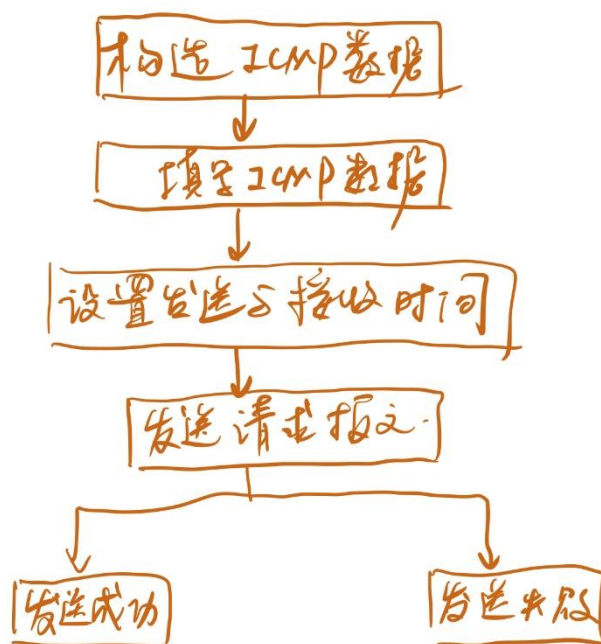 构造 ICMP数据
填写ICMP数据
设置发送与接收时间
发送请求报文.
发送成功
发送失败